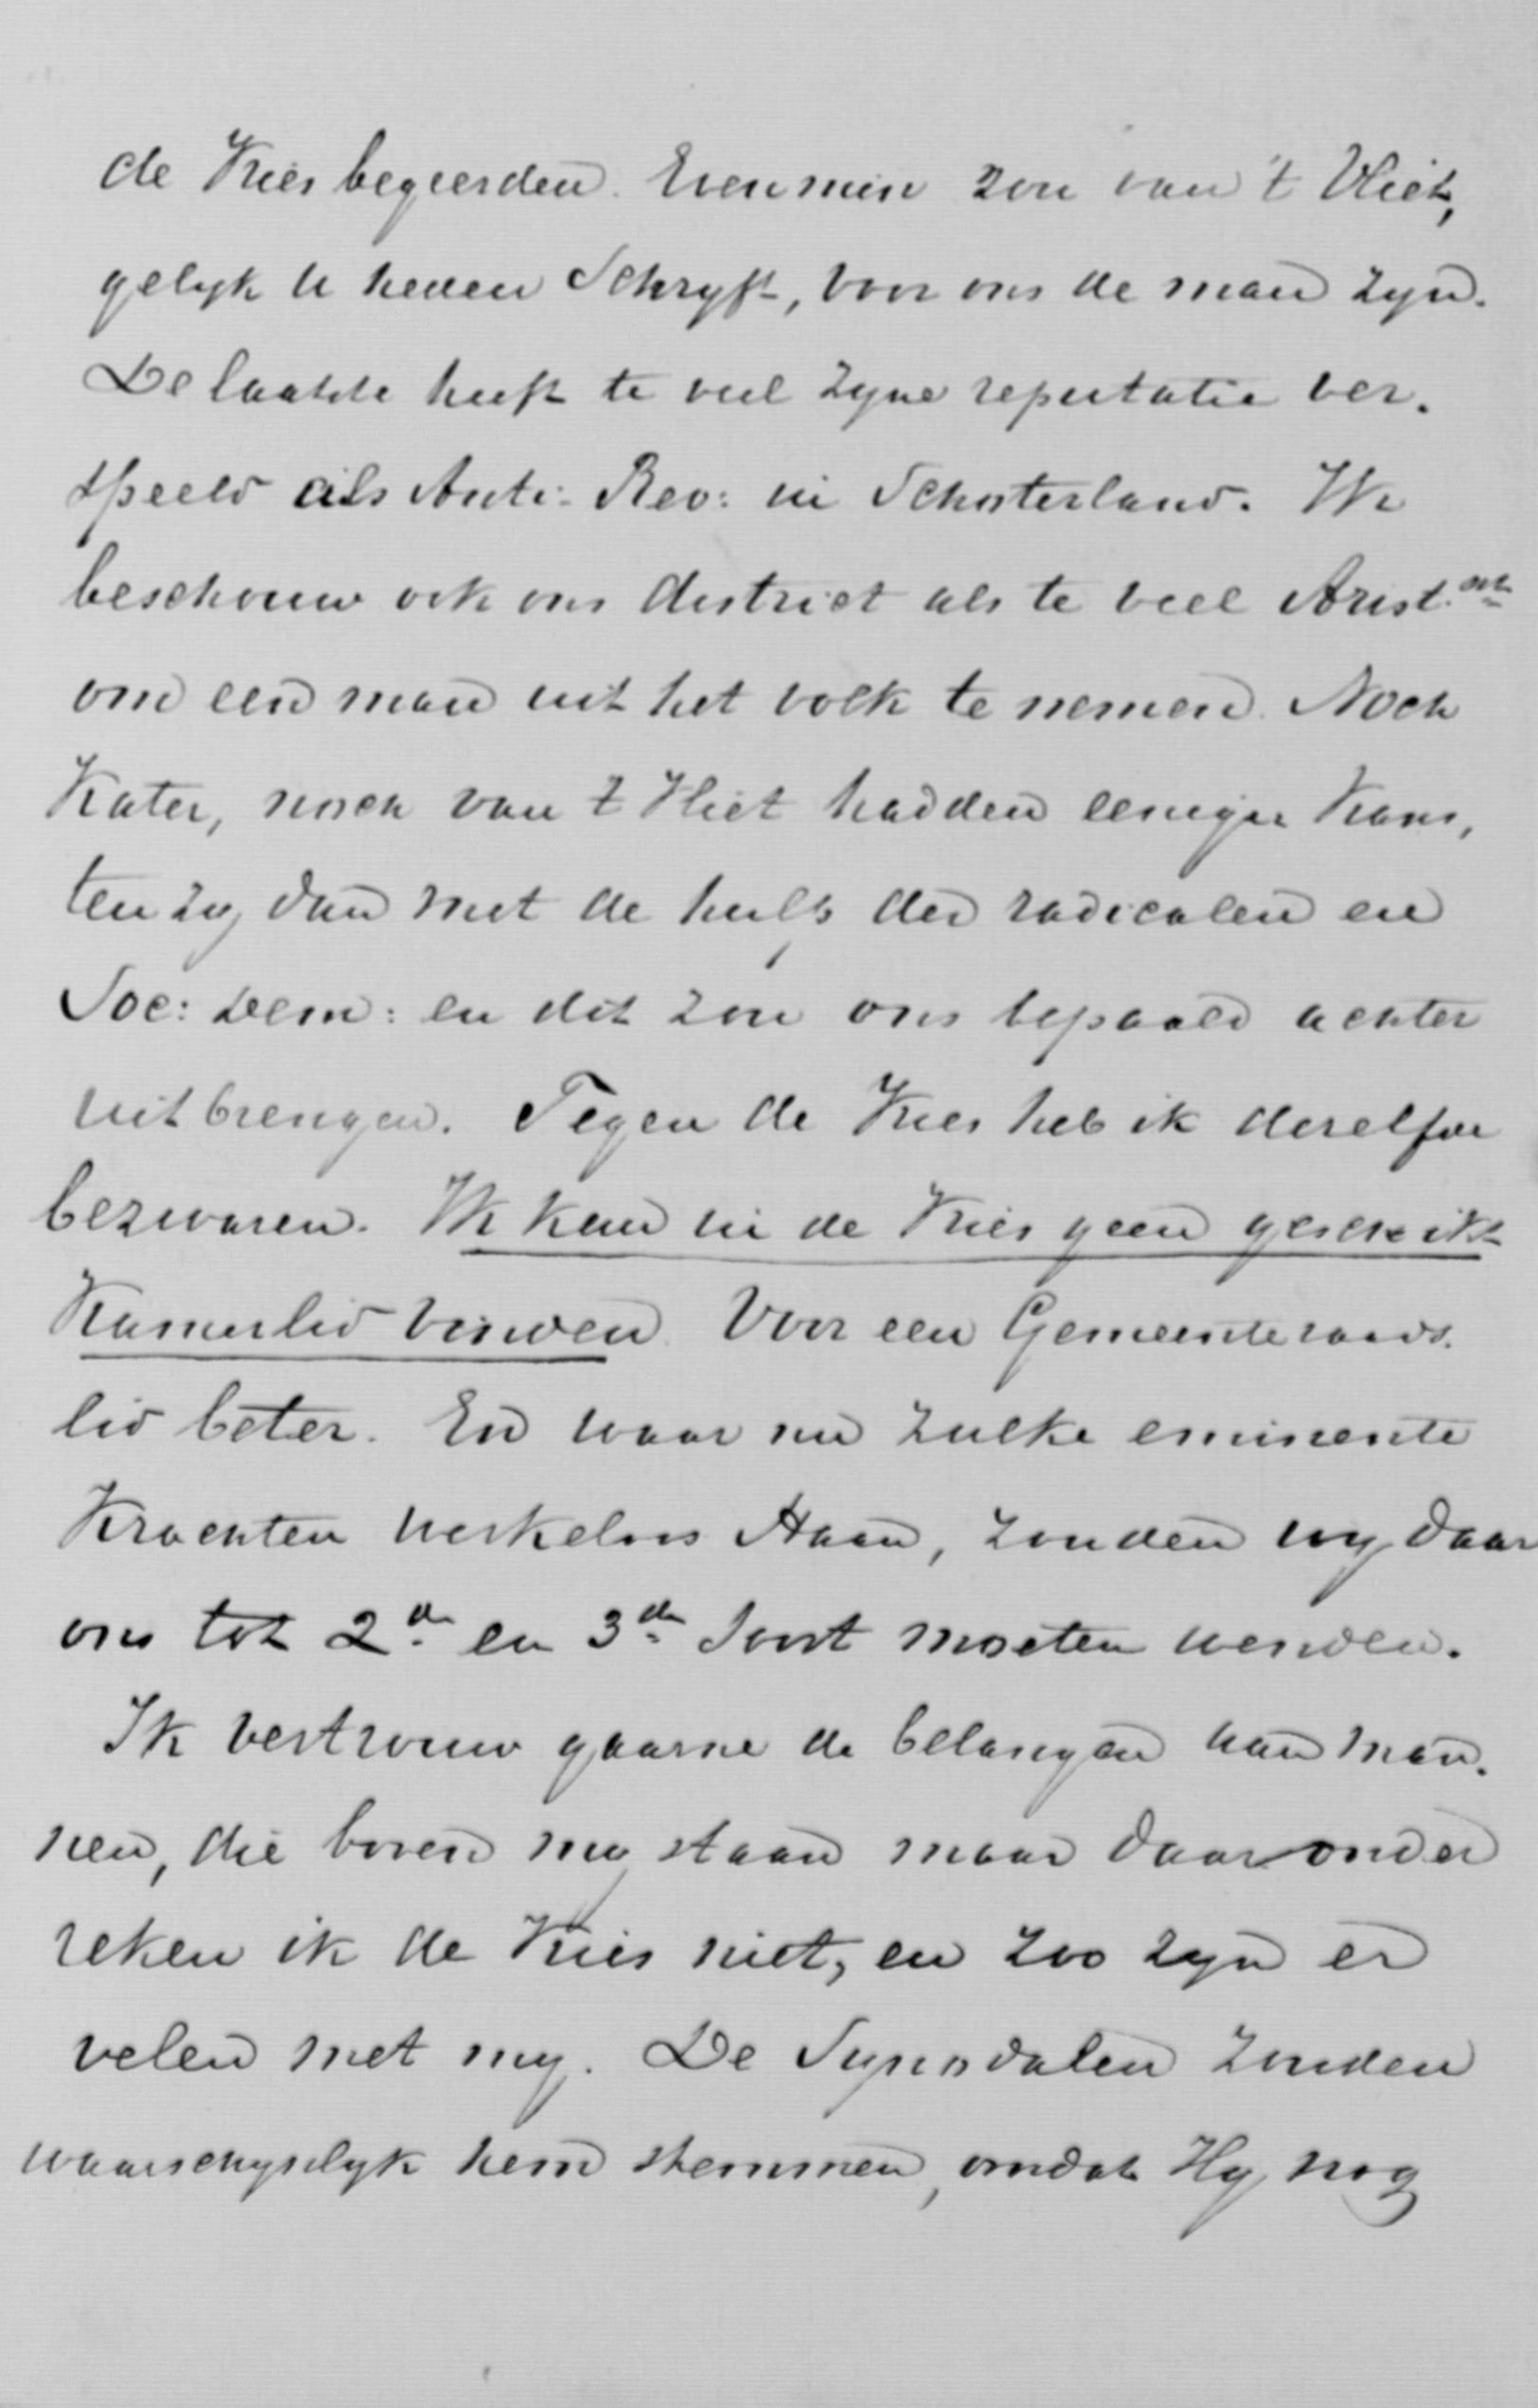 de Vries begeerden. Evenmin zou van 't Vliet,
gelyk U heden Schryft, voor ons de man zyn.
De laatste heeft te veel zyne reputatie ver.
speeld als Anti: Rev: in Schoterland. Ik
beschouw ook ons district als te veel Arist.
om een man uit het volk te nemen. Noch
Kater, noch van 't Vliet hadden eenige kans,
ten zy dan met de hulp der radicalen en
Soc: Dem: en dit zou ons bepaald achter
uitbrengen. Tegen de Vries heb ik dezelfde
bezwaren. Ik kan in de Vries geen geschikt
Kamerlid vinden. Voor een Gemeenteraads.
lid beter. En waar nu zulke eminente
Krachten werkeloos staan, zouden wy daar
ons tot 2de en 3de Soort moeten wenden.
Ik vertrouw gaarne de belangen aan man.
nen, die boven my staan maar daaronder
reken ik de Vries niet, en zoo zyn er
velen met my. De Synodalen zouden
waarschynlyk hem stemmen, omdat Hy nog